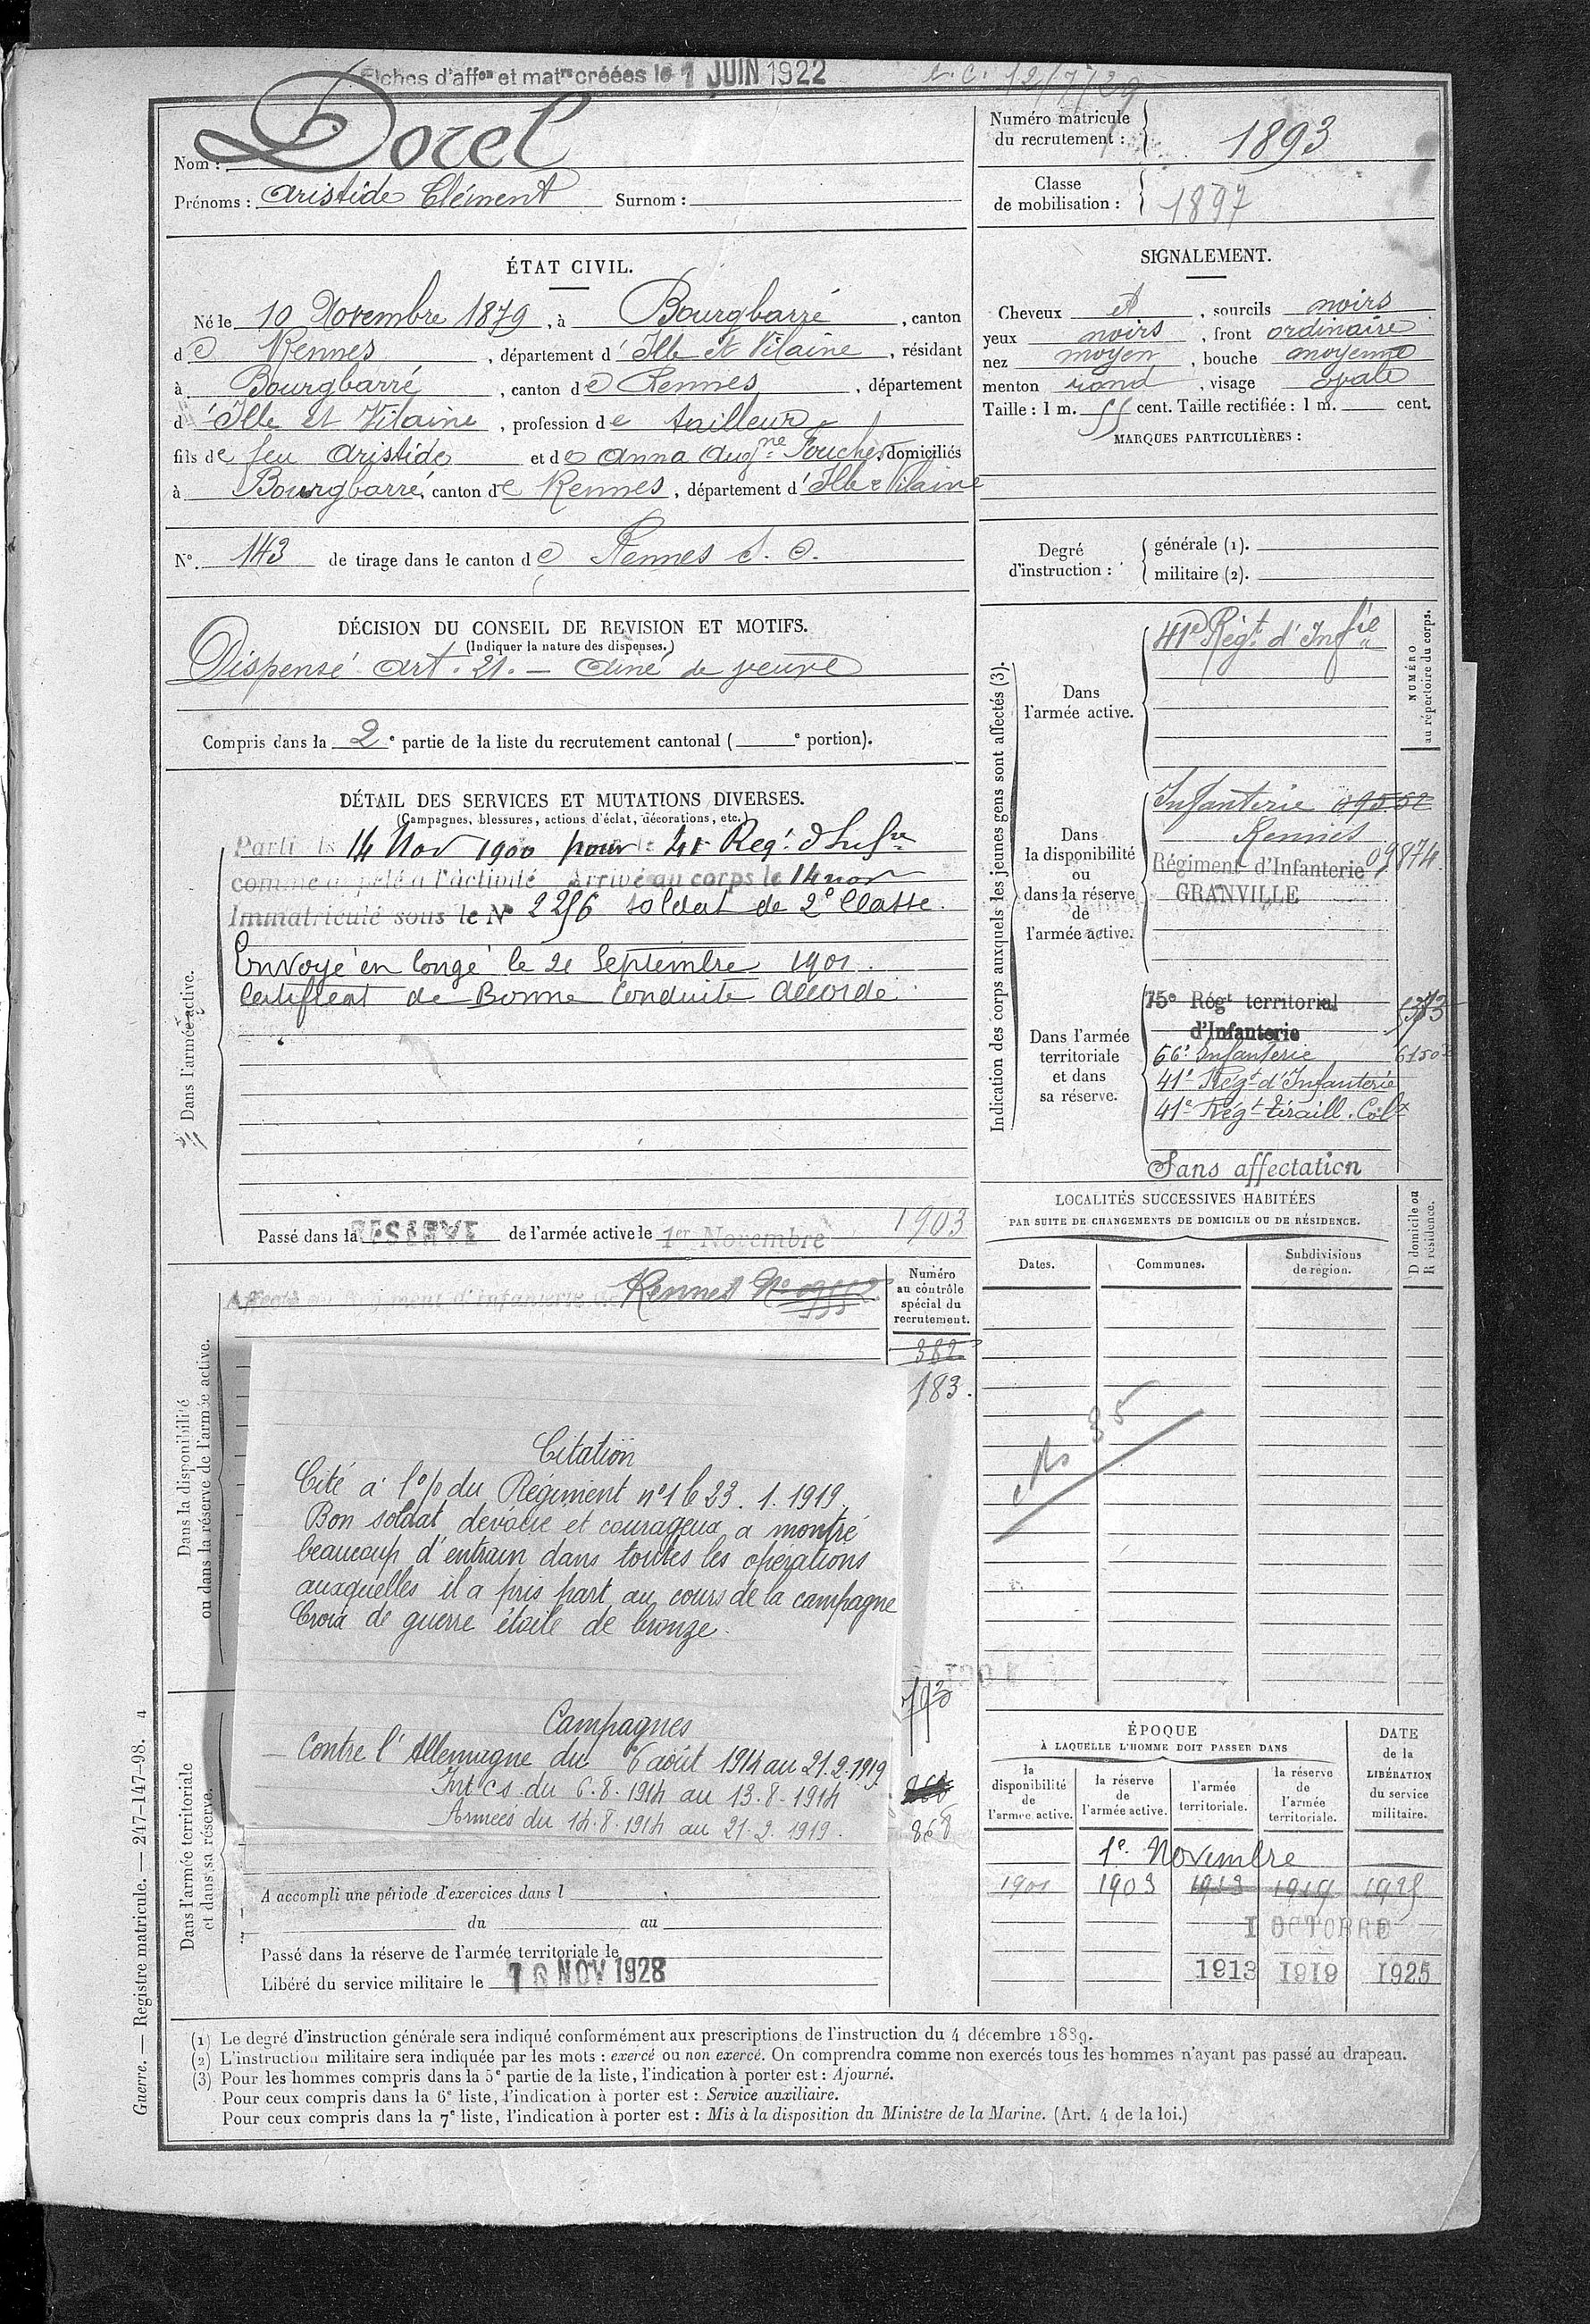 Fiches d'affon et matre créées le 1 JUIN 1922
Nom : Dorel
Prénoms : Aristide Clément Surnom :
Numéro matricule
du recrutement : 1893
Classe
de mobilisation : 1897
ÉTAT CIVIL.
Né le 10 Novembre 1879, à Bourgbarré, canton
de Rennes, département d'Ille et Vilaine, résidant
à Bourgbarré, canton de Rennes, département
d'Ille et Vilaine, profession de tailleur
fils de feu Aristide et de Anna Augne Foucher, domiciliés
à Bourgbarré, canton de Rennes, département d'Ille & Vilaine
N° 143 de tirage dans le canton de Rennes S. O.
SIGNALEMENT.
Cheveux et, sourcils noirs
yeux noirs, front ordinaire
nez moyen, bouche moyenne
menton rond, visage ovale
Taille : 1 m. 55 cent. Taille rectifiée : 1 m. cent.
MARQUES PARTICULIÈRES :
Degré
d'instruction :
générale (1).
militaire (2).
DÉCISION DU CONSEIL DE REVISION ET MOTIFS.
(Indiquer la nature des dispenses.)
Dispensé art. 21. — Ainé de veuve
Compris dans la 2e partie de la liste du recrutement cantonal ( e portion).
DÉTAIL DES SERVICES ET MUTATIONS DIVERSES.
(Campagnes, blessures, actions d'éclat, décorations, etc.)
Dans l'armée active.
Parti le 14 Nov 1900 pour le 41e Regt d'Infre
comme appelé à l'activité Arrivé au corps le 14 nov
Immatriculé sous le N° 2256 soldat de 2e Classe.
Envoyé en congé le 21 Septembre 1901.
Certificat de Bonne Conduite Accordé.
Passé dans la RÉSERVE de l'armée active le 1er Novembre 1903
Indication des corps auxquels les jeunes gens sont affectés (3).
NUMÉRO
au répertoire du corps.
Dans
l'armée active.
41e Régt d'Infie
Dans
la disponibilité
ou
dans la réserve
de
l'armée active.
Infanterie 09552
Rennes
Régiment d'Infanterie 09874
GRANVILLE
Dans l'armée
territoriale
et dans
sa réserve.
75e Régt territorial
d'Infanterie
66e Infanterie
41e Régt d'Infanterie
41e Régt tiraill. Colx
Sans affectation
LOCALITÉS SUCCESSIVES HABITÉES
PAR SUITE DE CHANGEMENTS DE DOMICILE OU DE RÉSIDENCE.
Dates.
Communes.
Subdivisions
de région.
D domicile ou
R résidence.
Dans la disponibilité
ou dans la réserve de l'armée active.
Affecté au Régiment d'Infanterie de Rennes N° 09552
Numéro
au contrôle
spécial du
recrutement.
382
183.
Citation
Cité à l'o/ du Régiment n°1 le 23. 1. 1919
Bon soldat dévoué et courageux a montré
beaucoup d'entrain dans toutes les opérations
auxquelles il a pris part au cours de la campagne
Croix de guerre étoile de bronze.
Campagnes
Contre l'Allemagne du 6 août 1914 au 21.2.1919
Int cs du 6.8.1914 au 13.8.1914
Armées du 14.8.1914 au 21.2.1919.
868
Dans l'armée territoriale
et dans sa réserve.
A accompli une période d'exercices dans l
du au
Passé dans la réserve de l'armée territoriale le
Libéré du service militaire le 10 NOV 1928
ÉPOQUE
À LAQUELLE L'HOMME DOIT PASSER DANS
la
disponibilité
de
l'armée active.
la réserve
de
l'armée active.
l'armée
territoriale.
la réserve
de
l'armée
territoriale.
DATE
de la
LIBÉRATION
du service
militaire.
1er Novembre
1901 1903 1913 1919 1925
1 OCTOBRE
1913 1919 1925
(1) Le degré d'instruction générale sera indiqué conformément aux prescriptions de l'instruction du 4 décembre 1889.
(2) L'instruction militaire sera indiquée par les mots : exercé ou non exercé. On comprendra comme non exercés tous les hommes n'ayant pas passé au drapeau.
(3) Pour les hommes compris dans la 5e partie de la liste, l'indication à porter est : Ajourné.
Pour ceux compris dans la 6e liste, l'indication à porter est : Service auxiliaire.
Pour ceux compris dans la 7e liste, l'indication à porter est : Mis à la disposition du Ministre de la Marine. (Art. 4 de la loi.)
Guerre. — Registre matricule. — 247-147-98. 4